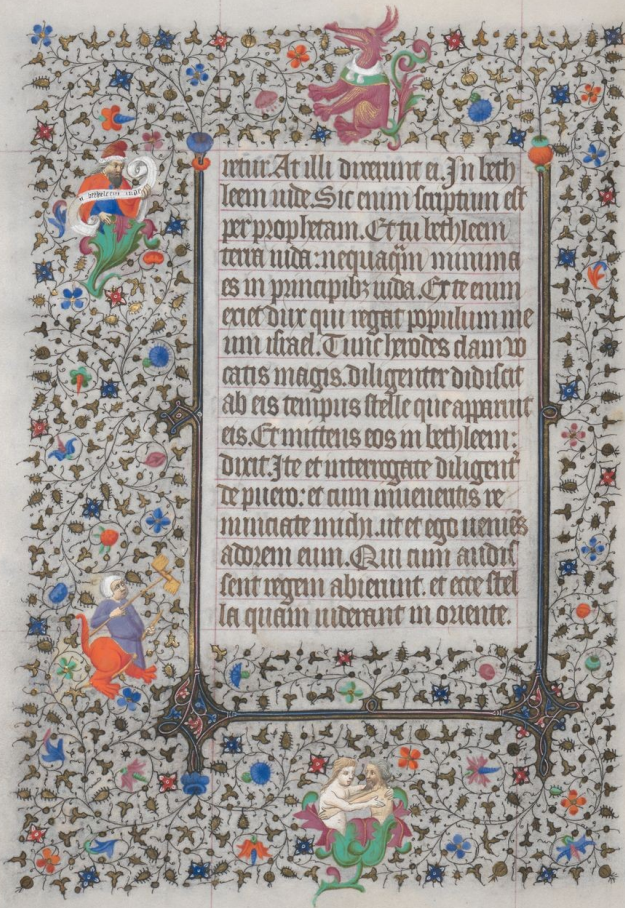 retur. At illi dixerunt ei. In beth
leem iude. Sic enim scriptum est
per prophetam. Et tu bethleem
terra iuda: nequaq̄m minima
es in principibꝫ iuda. Ex te enim
exiet dux qui regat populum me
um israel. Tunc herodes clam vo
catis magis. diligenter didiscit
ab eis tempus stelle que apparuit
eis. Et mittens eos in bethleem:
dixit. Ite et interrogate diligent᷑
de puero: et cum inueneritis re
nunciate michi. ut et ego ueniēs
adorem eum. Qui cum audis
sent regem abierunt. et ecce stel
la quam uiderant in oriente.
bethleem